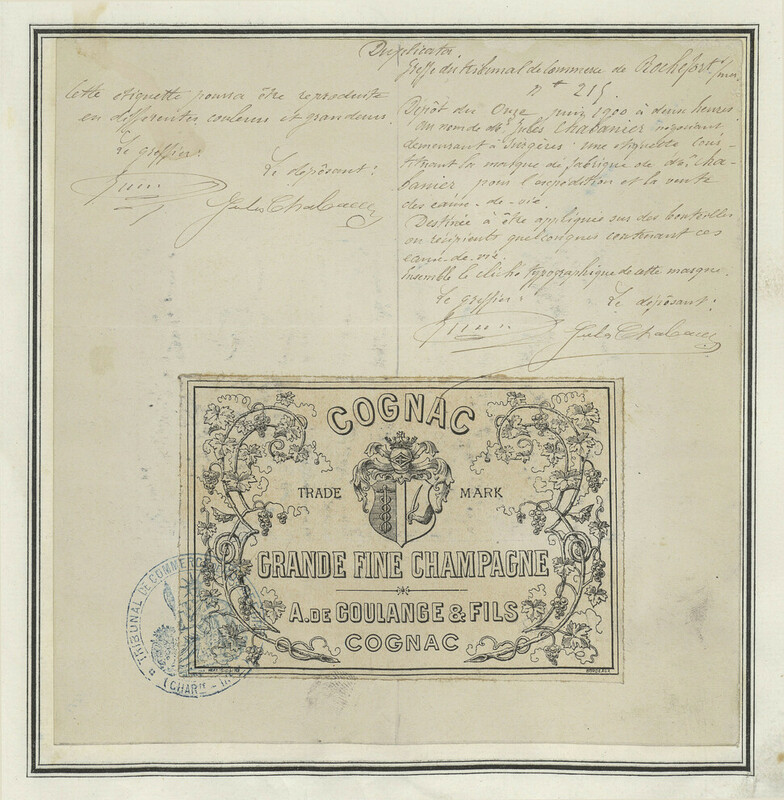 Duplicata.
Greffe du tribunal de Commerce de Rochefort s/mer
n° 215
Dépôt du Onze juin 1900 à deux heures
au nom de Mr Jules Chabanier négociant
demeurant à Surgères : une étiquette cons-
tituant la marque de fabrique de Mr Cha-
banier pour l'expédition et la vente
des eaux-de-vie.
Destinée à être appliquée sur des bouteilles
ou récipients quelconques contenant ces
eaux-de-vie.
Ensemble le cliché typographique de cette marque.
Le greffier :
Le déposant :
Cette étiquette pourra être reproduite
en différentes couleurs et grandeurs.
Le greffier :
Le déposant :
COGNAC
TRADE MARK
GRANDE FINE CHAMPAGNE
A. DE COULANGE & FILS
COGNAC
BORDEAUX
TRIBUNAL DE COMMERCE
(CHARte - INre)